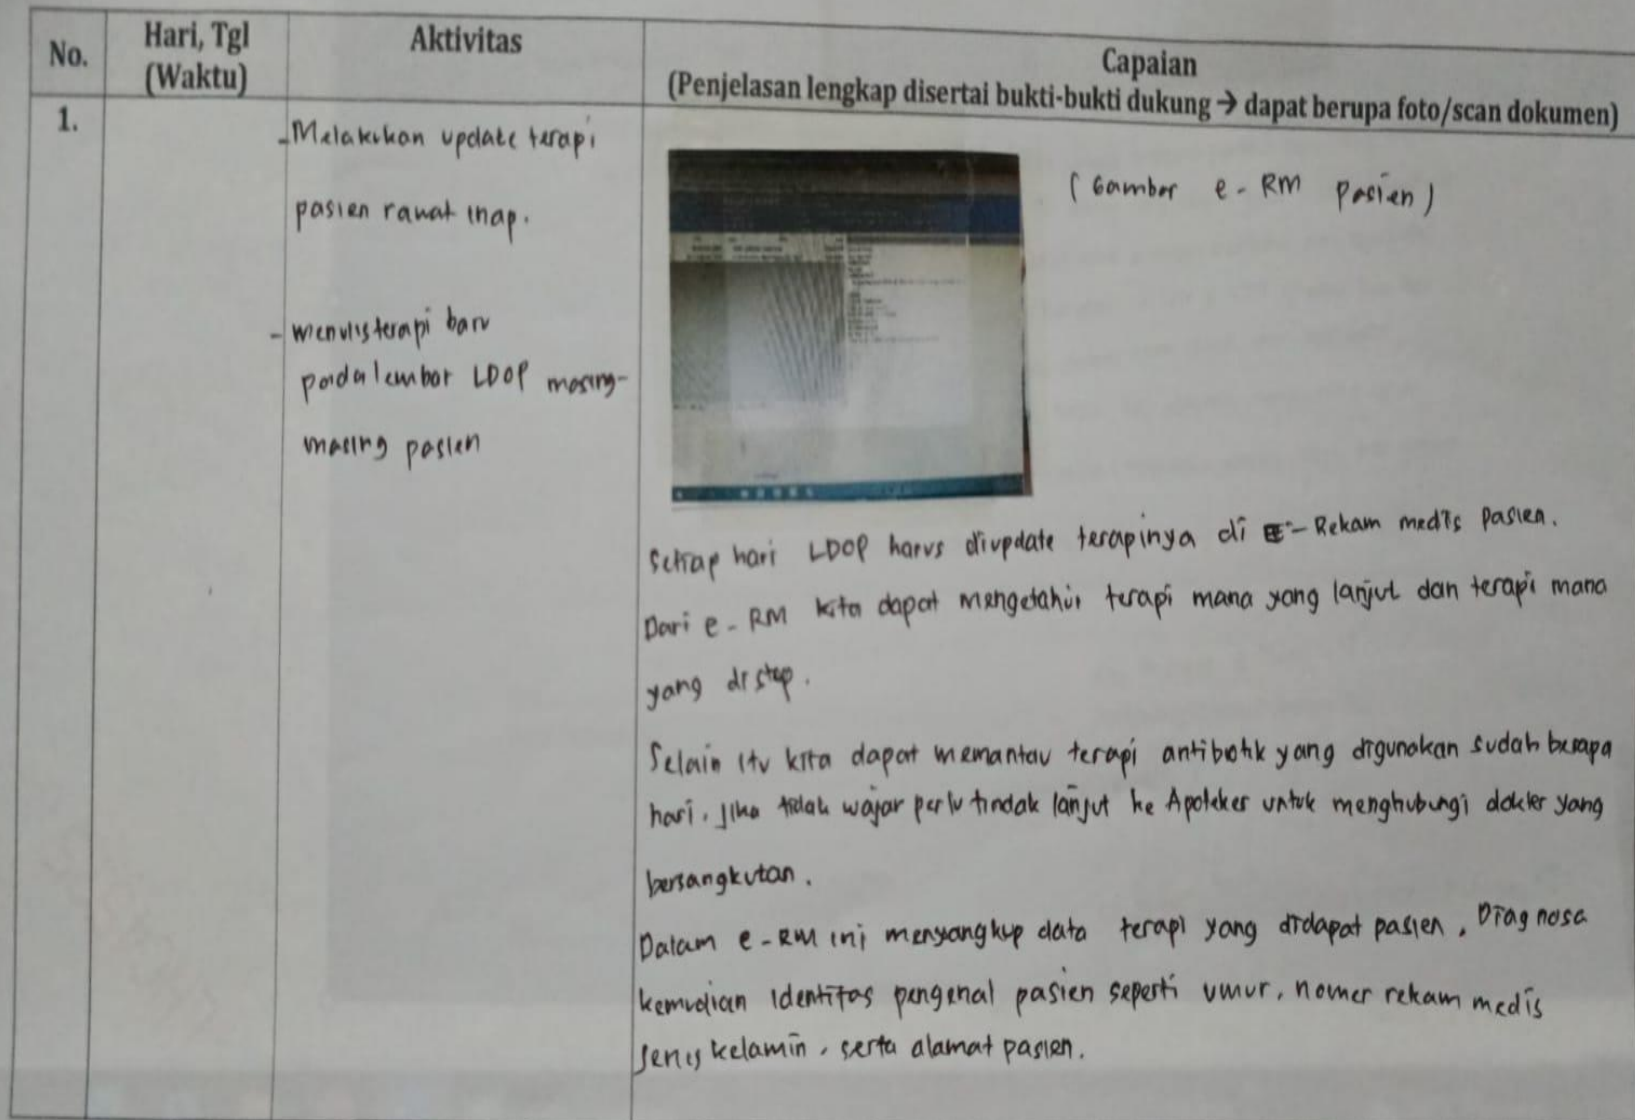 No.
Hari, Tgl
(Waktu)
Aktivitas
Capaian
(Penjelasan lengkap disertai bukti-bukti dukung → dapat berupa foto/scan dokumen)
1.
- Melakukan update terapi
pasien rawat inap.
- menulis terapi baru
pada lembar LDOP masing-
masing pasien
(Gambar e-RM pasien)
Setiap hari LDOP harus diupdate terapinya di E-Rekam medis pasien.
Dari e-RM kita dapat mengetahui terapi mana yang lanjut dan terapi mana
yang di stop.
Selain itu kita dapat memantau terapi antibiotik yang digunakan sudah berapa
hari. Jika tidak wajar perlu tindak lanjut ke Apoteker untuk menghubungi dokter yang
bersangkutan.
Dalam e-RM ini menyangkup data terapi yang didapat pasien, Diagnosa
kemudian identitas pengenal pasien seperti umur, nomer rekam medis
Jenis kelamin, serta alamat pasien.